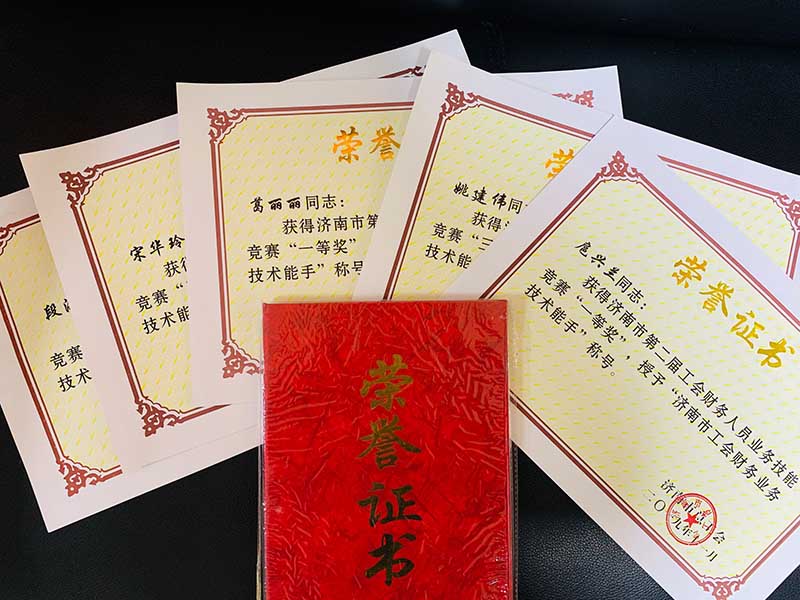 段
竞赛
技术能
宋华玲
获得
竞赛“
技术能
荣誉
葛丽丽同志：
获得济南市第
竞赛“一等奖”
技术能手”称号
荣
姚建伟同
获得
竞赛“三
技术能
荣誉证书
同志：
获得济南市第二届工会财务人员业务技能
竞赛“一等奖”，授予“济南市工会财务业务
技术能手”称号。
济南市总工会
二〇一九年
月
荣誉证书